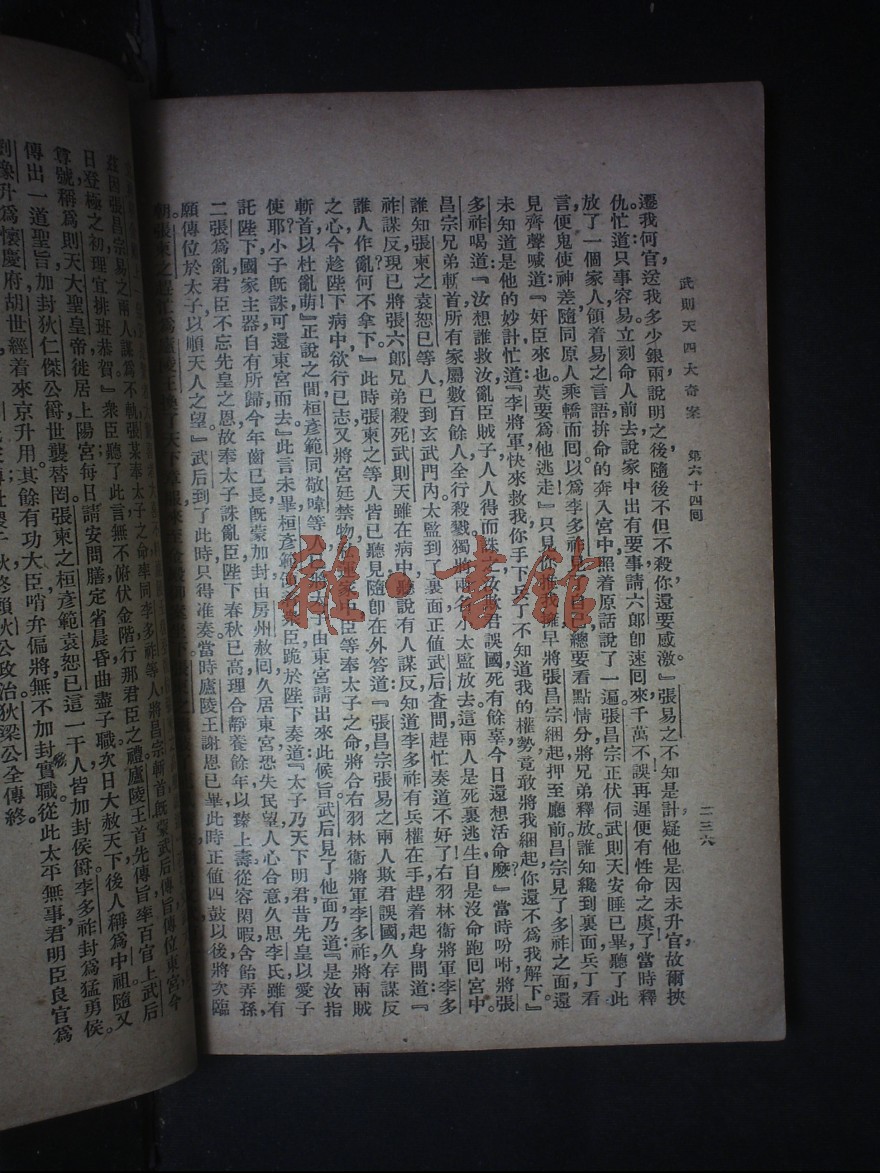 武則天四大奇案　第六十四回　二三六
遷我何官，送我多少銀兩，說明之後，隨後不但不殺，你還要感激。』張易之不知是計，疑他是因未升官，故爾挾
仇，忙道：『只事容易。』立刻命人前去，說家中出有要事，請六郎卽速回來，千萬不誤，再遲便有性命之虞了。當時釋
放了一個家人，領着易之言語，拚命的奔入宮中，照着原話說了一遍。張昌宗正伏伺武則天安睡已畢，聽了此
言，便鬼使神差，隨同原人乘轎而回，以爲李多祚見了自己，總要看點情分，將兄弟釋放。誰知纔到裏面，兵丁看
見，齊聲喊道：『奸臣來也，莫要爲他逃走。』只見你推我擁，早將張昌宗綑起，押至廳前。昌宗見了多祚之面，還
未知道是他的妙計，忙道：『李將軍快來救我，你手下兵丁不知道我的權勢，竟敢將我綑起，你還不爲我解下？』
多祚喝道：『汝想誰救汝，亂臣賊子，人人得而誅之，汝欺君誤國，死有餘辜，今日還想活命麼？』當時吩咐將張
昌宗兄弟斬首，所有家屬數百餘人，全行殺戮，獨將兩名小太監放去。這兩人是死裏逃生，自是沒命跑回宮中。
誰知張柬之袁恕已等人，已到玄武門內，太監到了裏面，正值武后查問，趕忙奏道：『不好了！右羽林衞將軍李多
祚謀反，現已將張六郎兄弟殺死。』武則天雖在病中，聽說有人謀反，知道李多祚有兵權在手，趕着起身問道：『
誰人作亂，何不拿下？』此時張柬之等人皆已聽見，隨卽在外答道：『張昌宗張易之兩人欺君誤國，久存謀反
之心，今趁陛下病中，欲行已志，又將宮廷禁物私運家中，臣等奉太子之命，將合右羽林衞將軍李多祚將兩賊
斬首，以杜亂萌。』正說之間，桓彥範同敬暉等人，已將太子由東宮請出來此候旨。武后見了他面，乃道：『是汝指
使耶？小子旣誅，可還東宮而去。』此言未畢，桓彥範與衆臣跪於陛下奏道：『太子乃天下明君，昔先皇以愛子
託陛下，國家主器，自有所歸，今年齒已長，旣蒙加封，由房州赦回，久居東宮，恐失民望，人心合意久思李氏，雖有
二張爲亂，君臣不忘先皇之恩，故奉太子誅亂臣，陛下春秋已高，理合靜養餘年，以臻上壽，從容閑暇，含飴弄孫，
願傳位於太子，以順天人之望。』武后到了此時，只得准奏。當時廬陵王謝恩已畢，此時正值四鼓以後，將次臨
朝，張柬之
莊因張昌宗易之兩人謀爲不軌，張某奉太子之命，率同李多祚等人將昌宗斬首，旣蒙武后傳旨，傳位東宮，今
日登極之初，理宜排班恭賀。』衆臣聽了此言，無不俯伏金階，行那君臣之禮。廬陵王首先傳旨，率百官上武后
尊號，稱爲則天大聖皇帝，徙居上陽宮，每日請安問膳，定省晨昏，曲盡子職。次日大赦天下，後人稱爲中祖。隨又
傳出一道聖旨，加封狄仁傑公爵世襲，替罔張柬之桓彥範袁恕已這一干人皆加封侯爵，李多祚封爲猛勇侯，
劉豫升爲懷慶府，胡世經着來京升用，其餘有功大臣哨弁偏將，無不加封實職。從此太平無事，君明臣良，官爲
狄公政治，狄梁公全傳終。
雜·書館